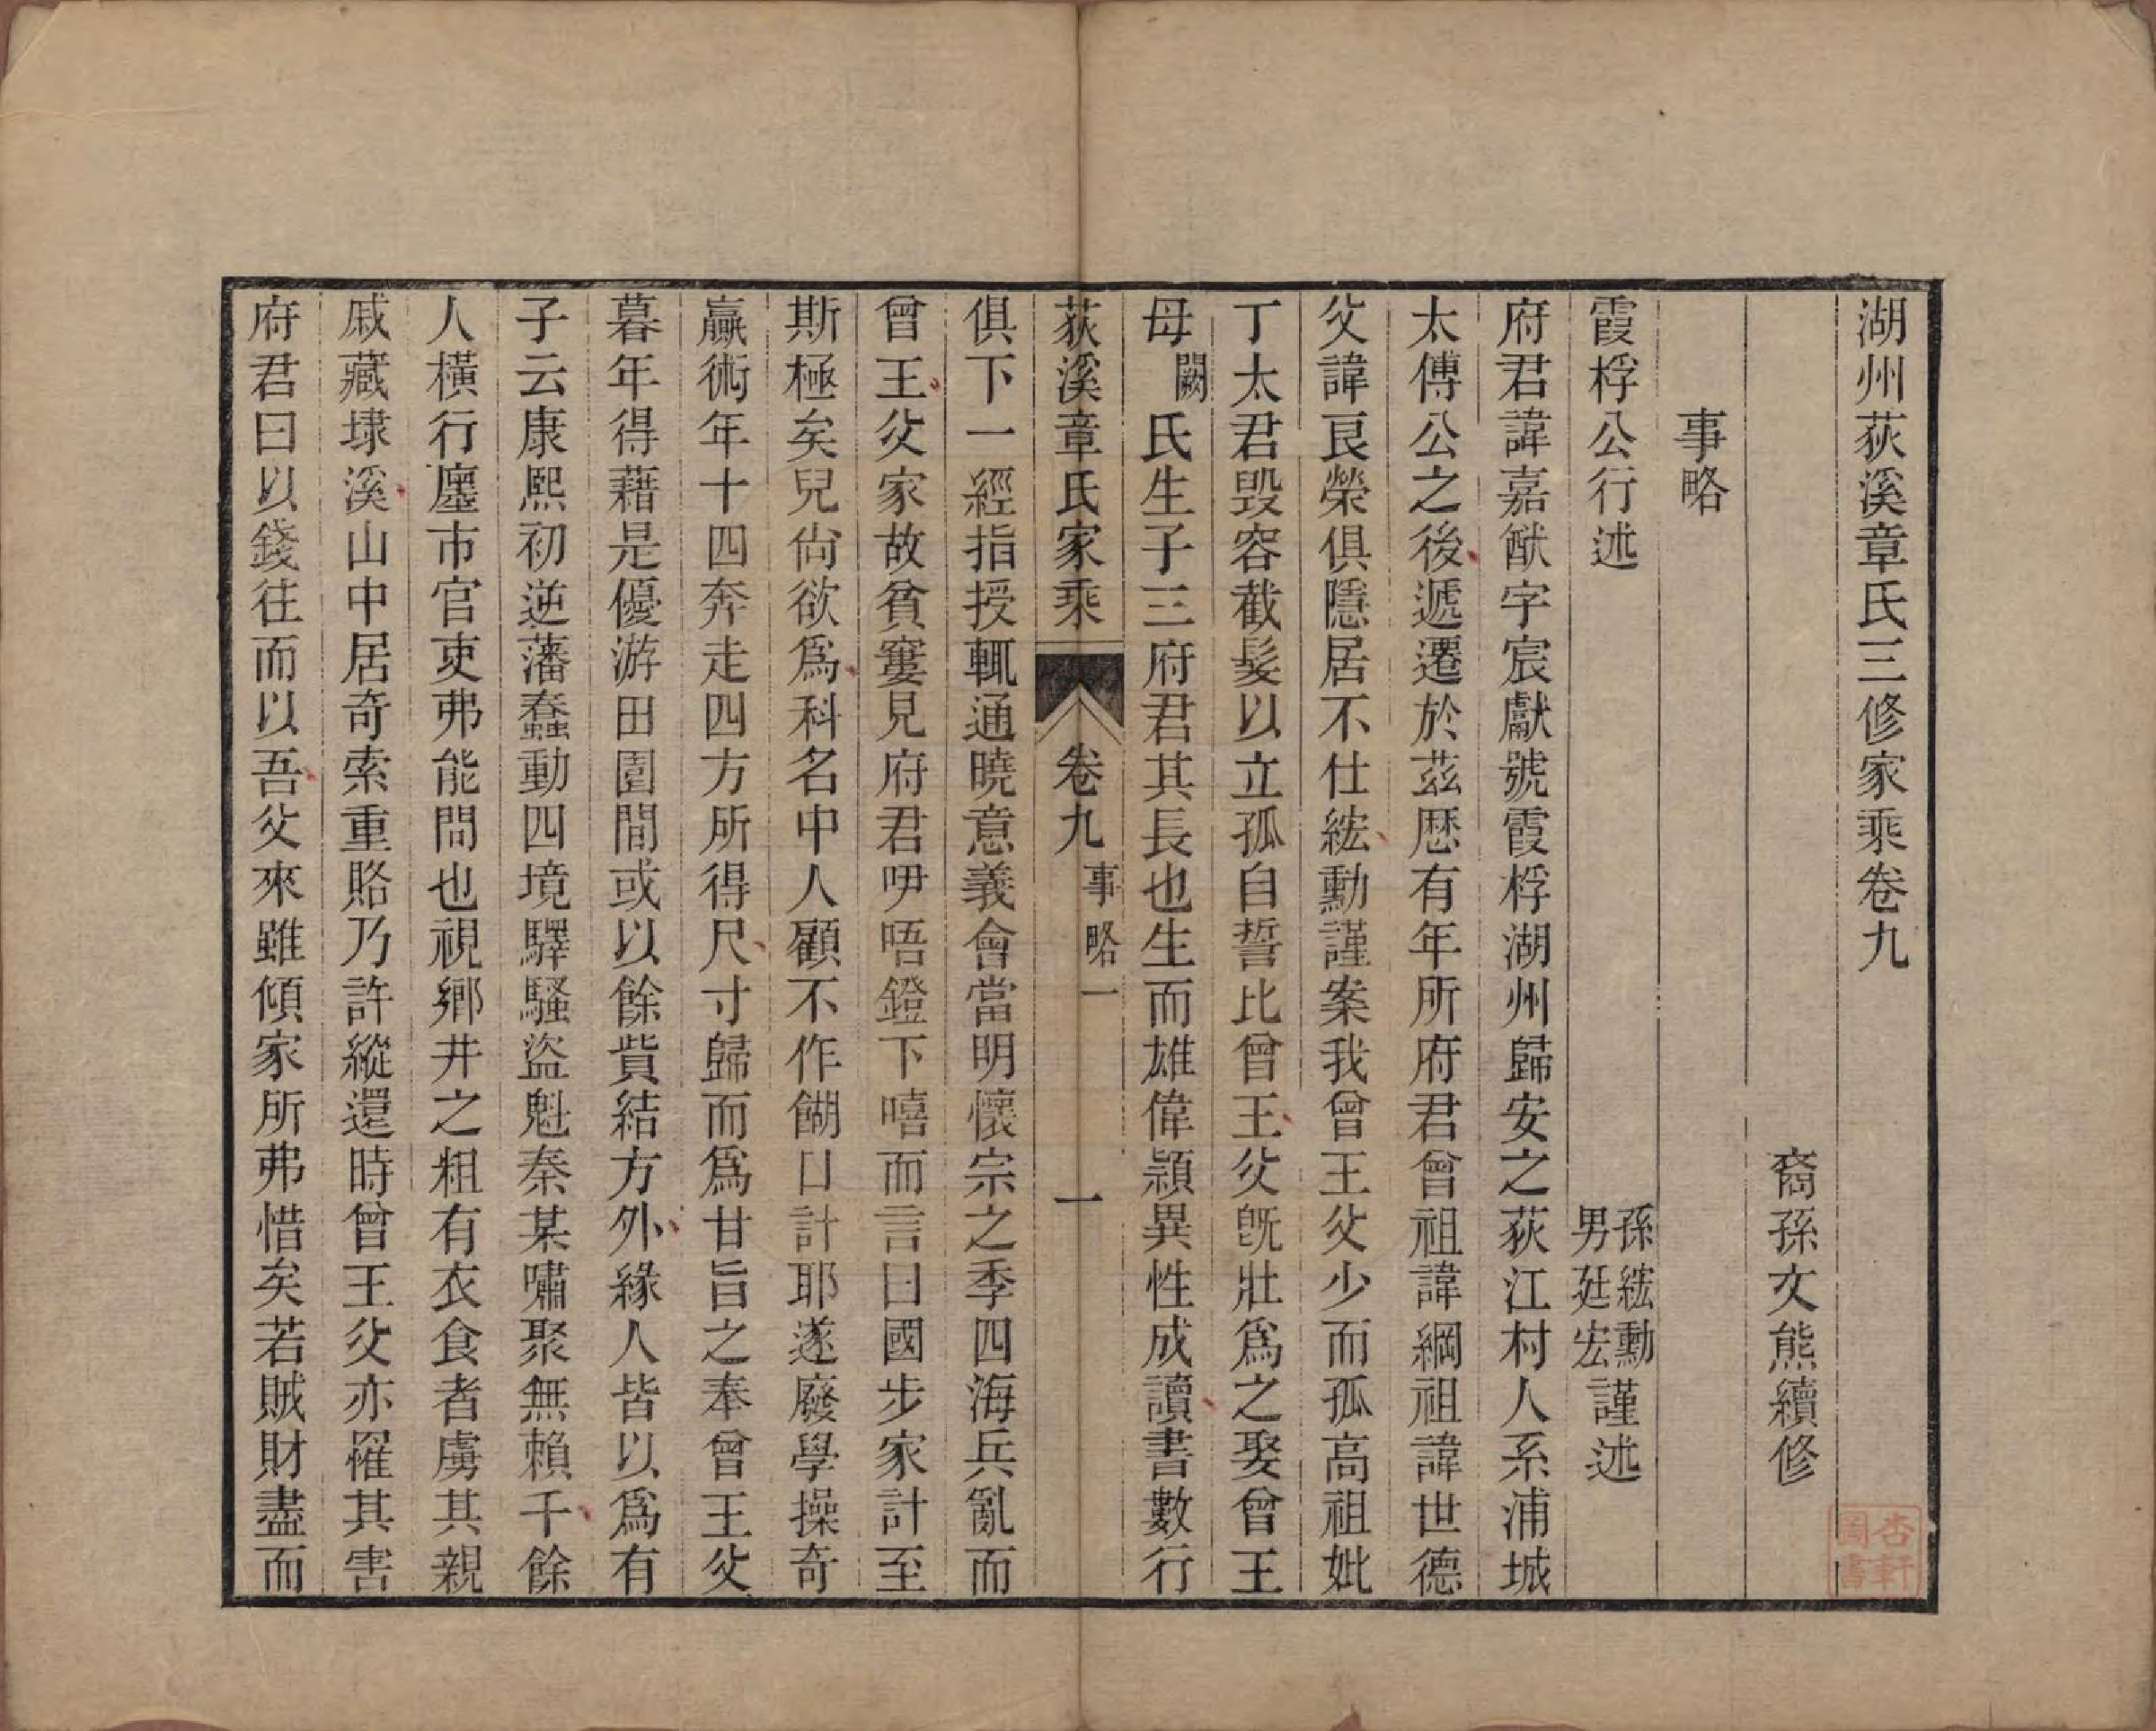 湖州荻溪章氏三修家乘卷九
裔孫文熊續修
事略
霞桴公行述
孫綋勳
男廷宏
謹述
府君諱嘉猷字宸獻號霞桴湖州歸安之荻江村人系浦城
太傅公之後遞遷於茲歷有年所府君曾祖諱綱祖諱世德
父諱良榮俱隱居不仕綋勳謹案我曾王父少而孤高祖妣
丁太君毀容截髮以立孤自誓比曾王父旣壯爲之娶曾王
母闕氏生子三府君其長也生而雄偉穎異性成讀書數行
荻溪章氏家乘 卷九 事略一 一
俱下一經指授輒通曉意義會當明懷宗之季四海兵亂而
曾王父家故貧窶見府君呷唔鐙下嘻而言曰國步家計至
斯極矣兒尙欲爲科名中人顧不作餬口計耶遂廢學操奇
贏術年十四奔走四方所得尺寸歸而爲甘旨之奉曾王父
暮年得藉是優游田園間或以餘貲結方外緣人皆以爲有
子云康熙初逆藩蠢動四境驛騷盜魁秦某嘯聚無賴千餘
人橫行廛市官吏弗能問也視鄉井之粗有衣食者虜其親
戚藏埭溪山中居奇索重賂乃許縱還時曾王父亦罹其害
府君曰以錢往而以吾父來雖傾家所弗惜矣若賊財盡而
杏軒圖書